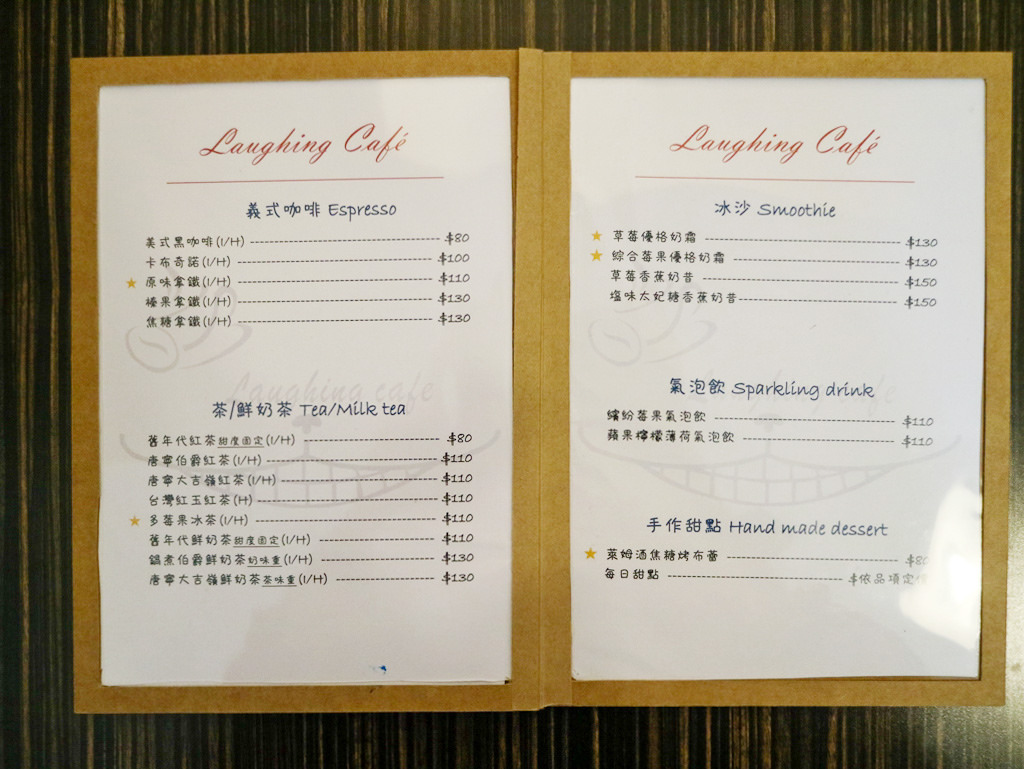 Laughing Café
義式咖啡 Espresso
美式黑咖啡(I/H) $80
卡布奇諾(I/H) $100
★ 原味拿鐵(I/H) $110
榛果拿鐵(I/H) $130
焦糖拿鐵(I/H) $130
Laughing cafe
茶/鮮奶茶 Tea/Milk tea
舊年代紅茶甜度固定(I/H) $80
唐寧伯爵紅茶(I/H) $110
唐寧大吉嶺紅茶(I/H) $110
台灣紅玉紅茶(H) $110
★ 多莓果冰茶(I/H) $110
舊年代鮮奶茶甜度固定(I/H) $110
鍋煮伯爵鮮奶茶奶味重(I/H) $130
唐寧大吉嶺鮮奶茶茶味重(I/H) $130
Laughing Café
冰沙 Smoothie
★ 草莓優格奶霜 $130
★ 綜合莓果優格奶霜 $130
草莓香蕉奶昔 $150
塩味太妃糖香蕉奶昔 $150
氣泡飲 Sparkling drink
繽紛莓果氣泡飲 $110
蘋果檸檬薄荷氣泡飲 $110
手作甜點 Hand made dessert
★ 萊姆酒焦糖烤布蕾 $80
每日甜點 $依品項定價